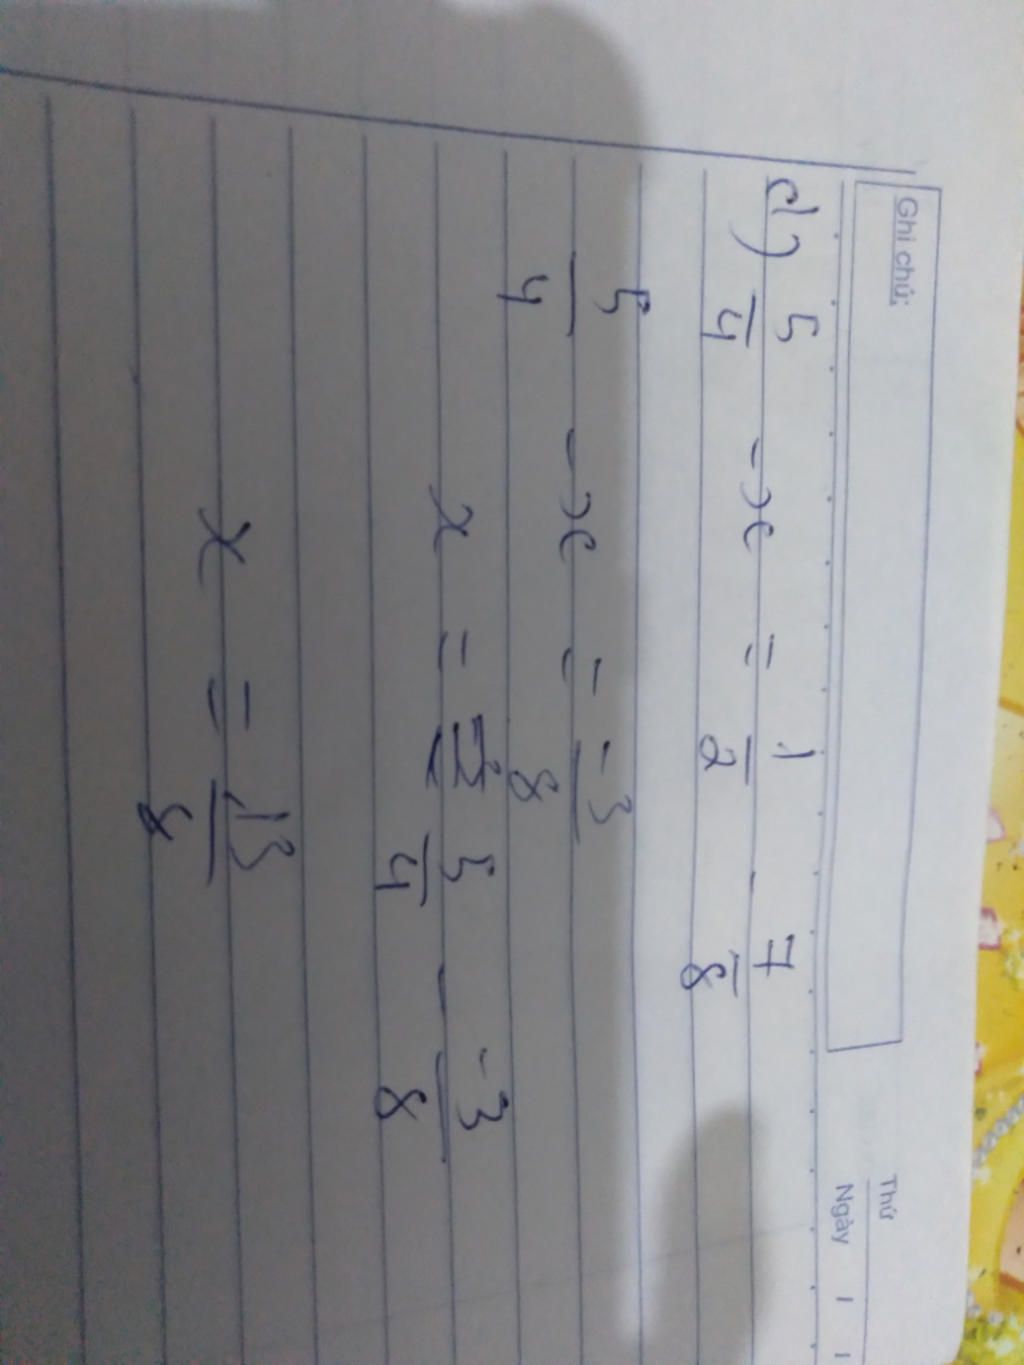 Ghi chú:
Thứ
Ngày / /
d) 5/4 - x = 1/2 - 7/8
5/4 - x = -3/8
x = 5/4 - -3/8
x = 13/8